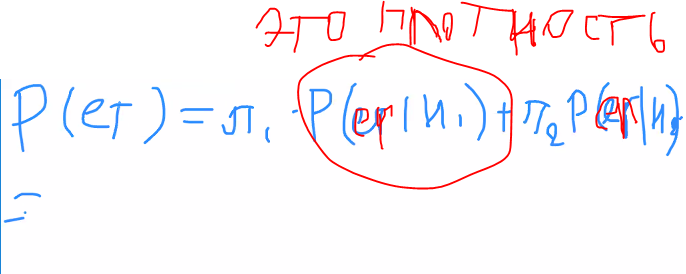 это плотность
P(er) = π₁ · P(er|H₁) + π₂ P(er|H₂)
=